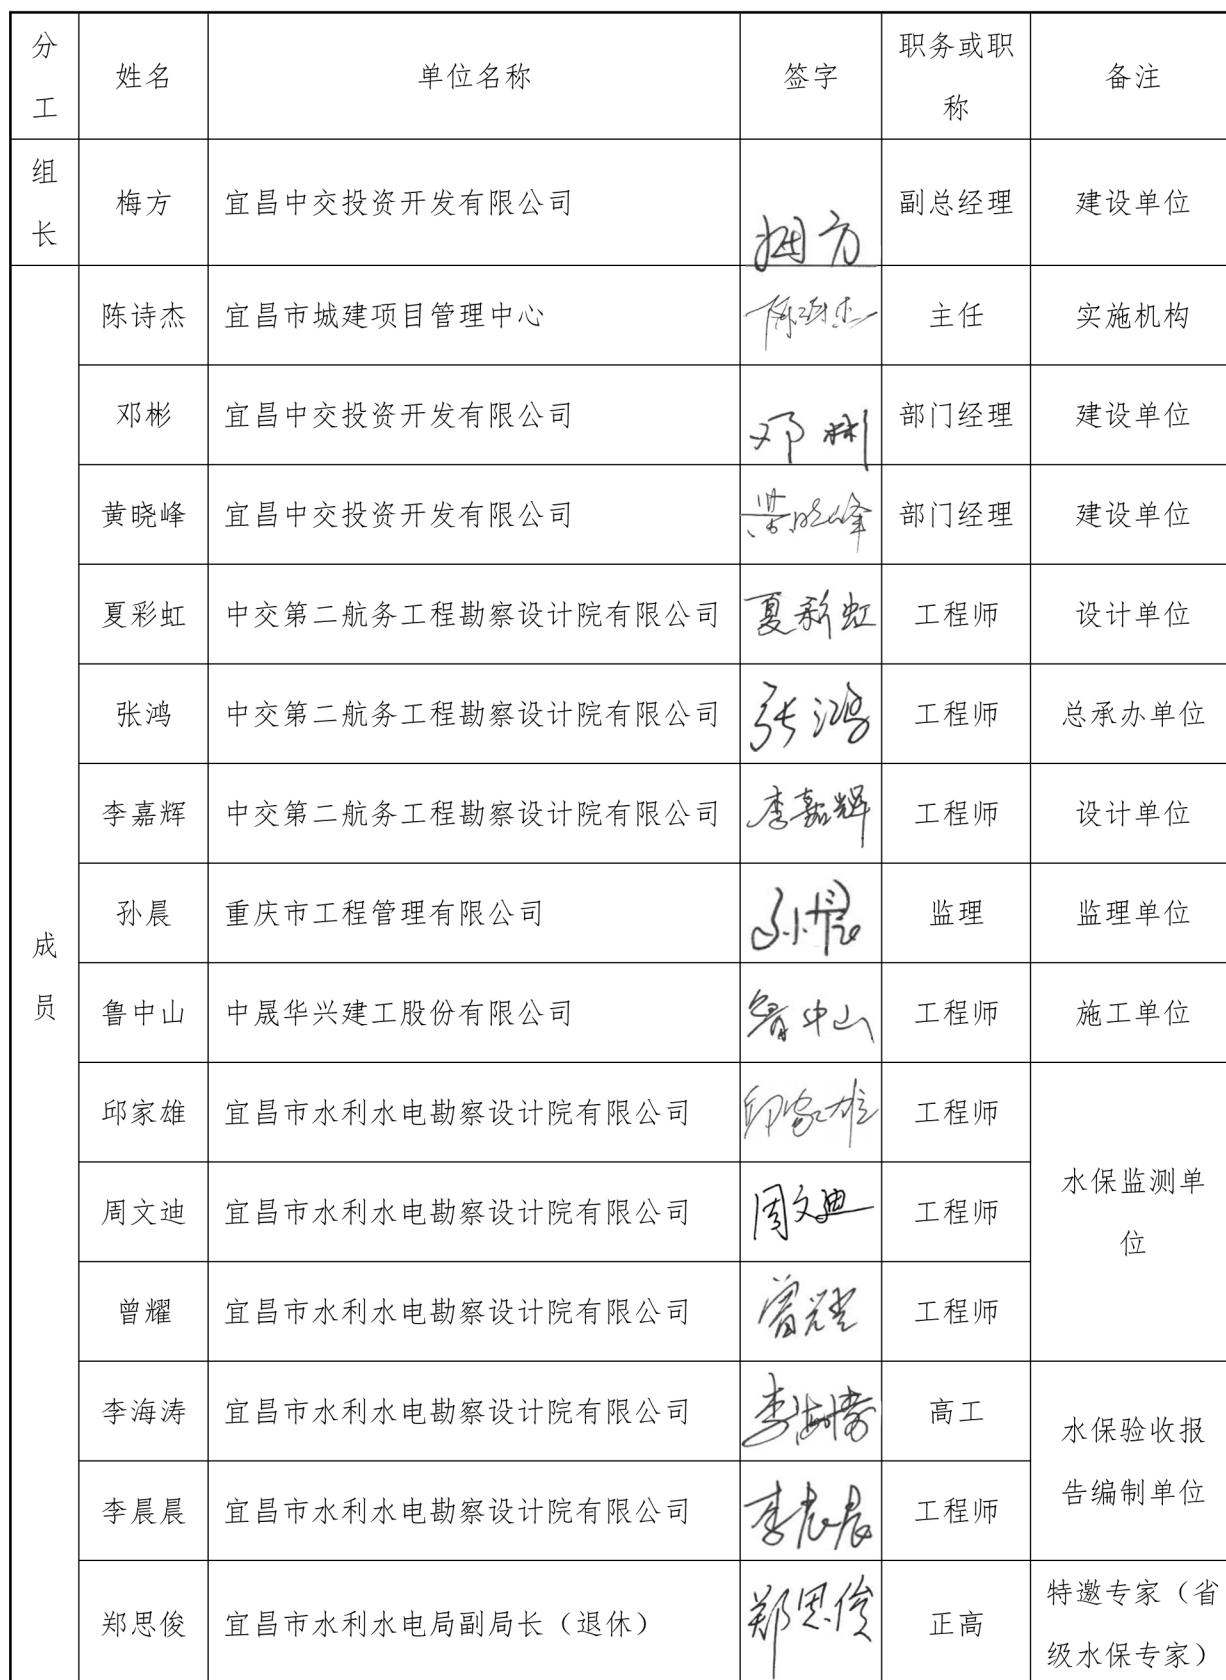 分工 姓名 单位名称 签字 职务或职称 备注
组长 梅方 宜昌中交投资开发有限公司 梅方 副总经理 建设单位
成员
陈诗杰 宜昌市城建项目管理中心 陈诗杰 主任 实施机构
邓彬 宜昌中交投资开发有限公司 邓彬 部门经理 建设单位
黄晓峰 宜昌中交投资开发有限公司 黄晓峰 部门经理 建设单位
夏彩虹 中交第二航务工程勘察设计院有限公司 夏彩虹 工程师 设计单位
张鸿 中交第二航务工程勘察设计院有限公司 张鸿 工程师 总承办单位
李嘉辉 中交第二航务工程勘察设计院有限公司 李嘉辉 工程师 设计单位
孙晨 重庆市工程管理有限公司 孙晨 监理 监理单位
鲁中山 中晟华兴建工股份有限公司 鲁中山 工程师 施工单位
邱家雄 宜昌市水利水电勘察设计院有限公司 邱家雄 工程师 水保监测单位
周文迪 宜昌市水利水电勘察设计院有限公司 周文迪 工程师
曾耀 宜昌市水利水电勘察设计院有限公司 曾耀 工程师
李海涛 宜昌市水利水电勘察设计院有限公司 李海涛 高工 水保验收报告编制单位
李晨晨 宜昌市水利水电勘察设计院有限公司 李晨晨 工程师
郑思俊 宜昌市水利水电局副局长（退休） 郑思俊 正高 特邀专家（省级水保专家）